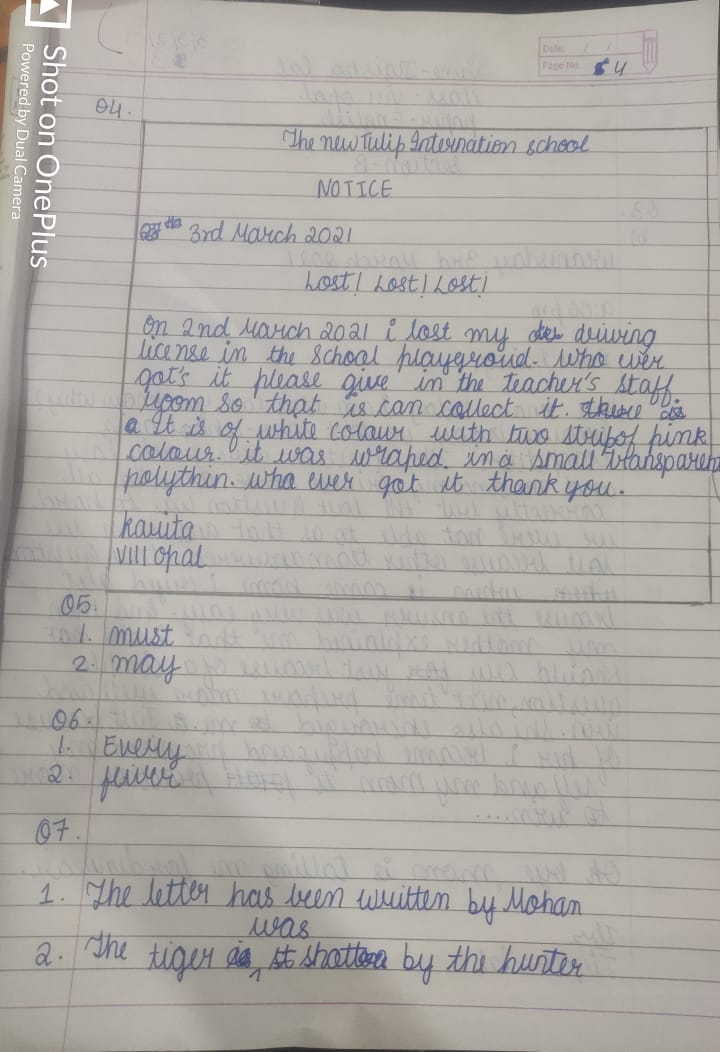 Shot on OnePlus
Powered by Dual Camera
Date: / /
Page No. 4
Q4.
The new Tulip Internation school
NOTICE
3rd March 2021
Lost! Lost! Lost!
On 2nd March 2021 i lost my driving
license in the School playground. Who ever
got's it please give in the teacher's staff
room so that is can collect it.
It is of white colour with two strip of pink
colour. it was wraped in a small transparent
polythin. who ever got it thank you.
Kavita
VIII Opal
Q5.
1. must
2. may
Q6.
1. Every
2. fewer
Q7.
1. The letter has been written by Mohan
was
2. The tiger by the hunter